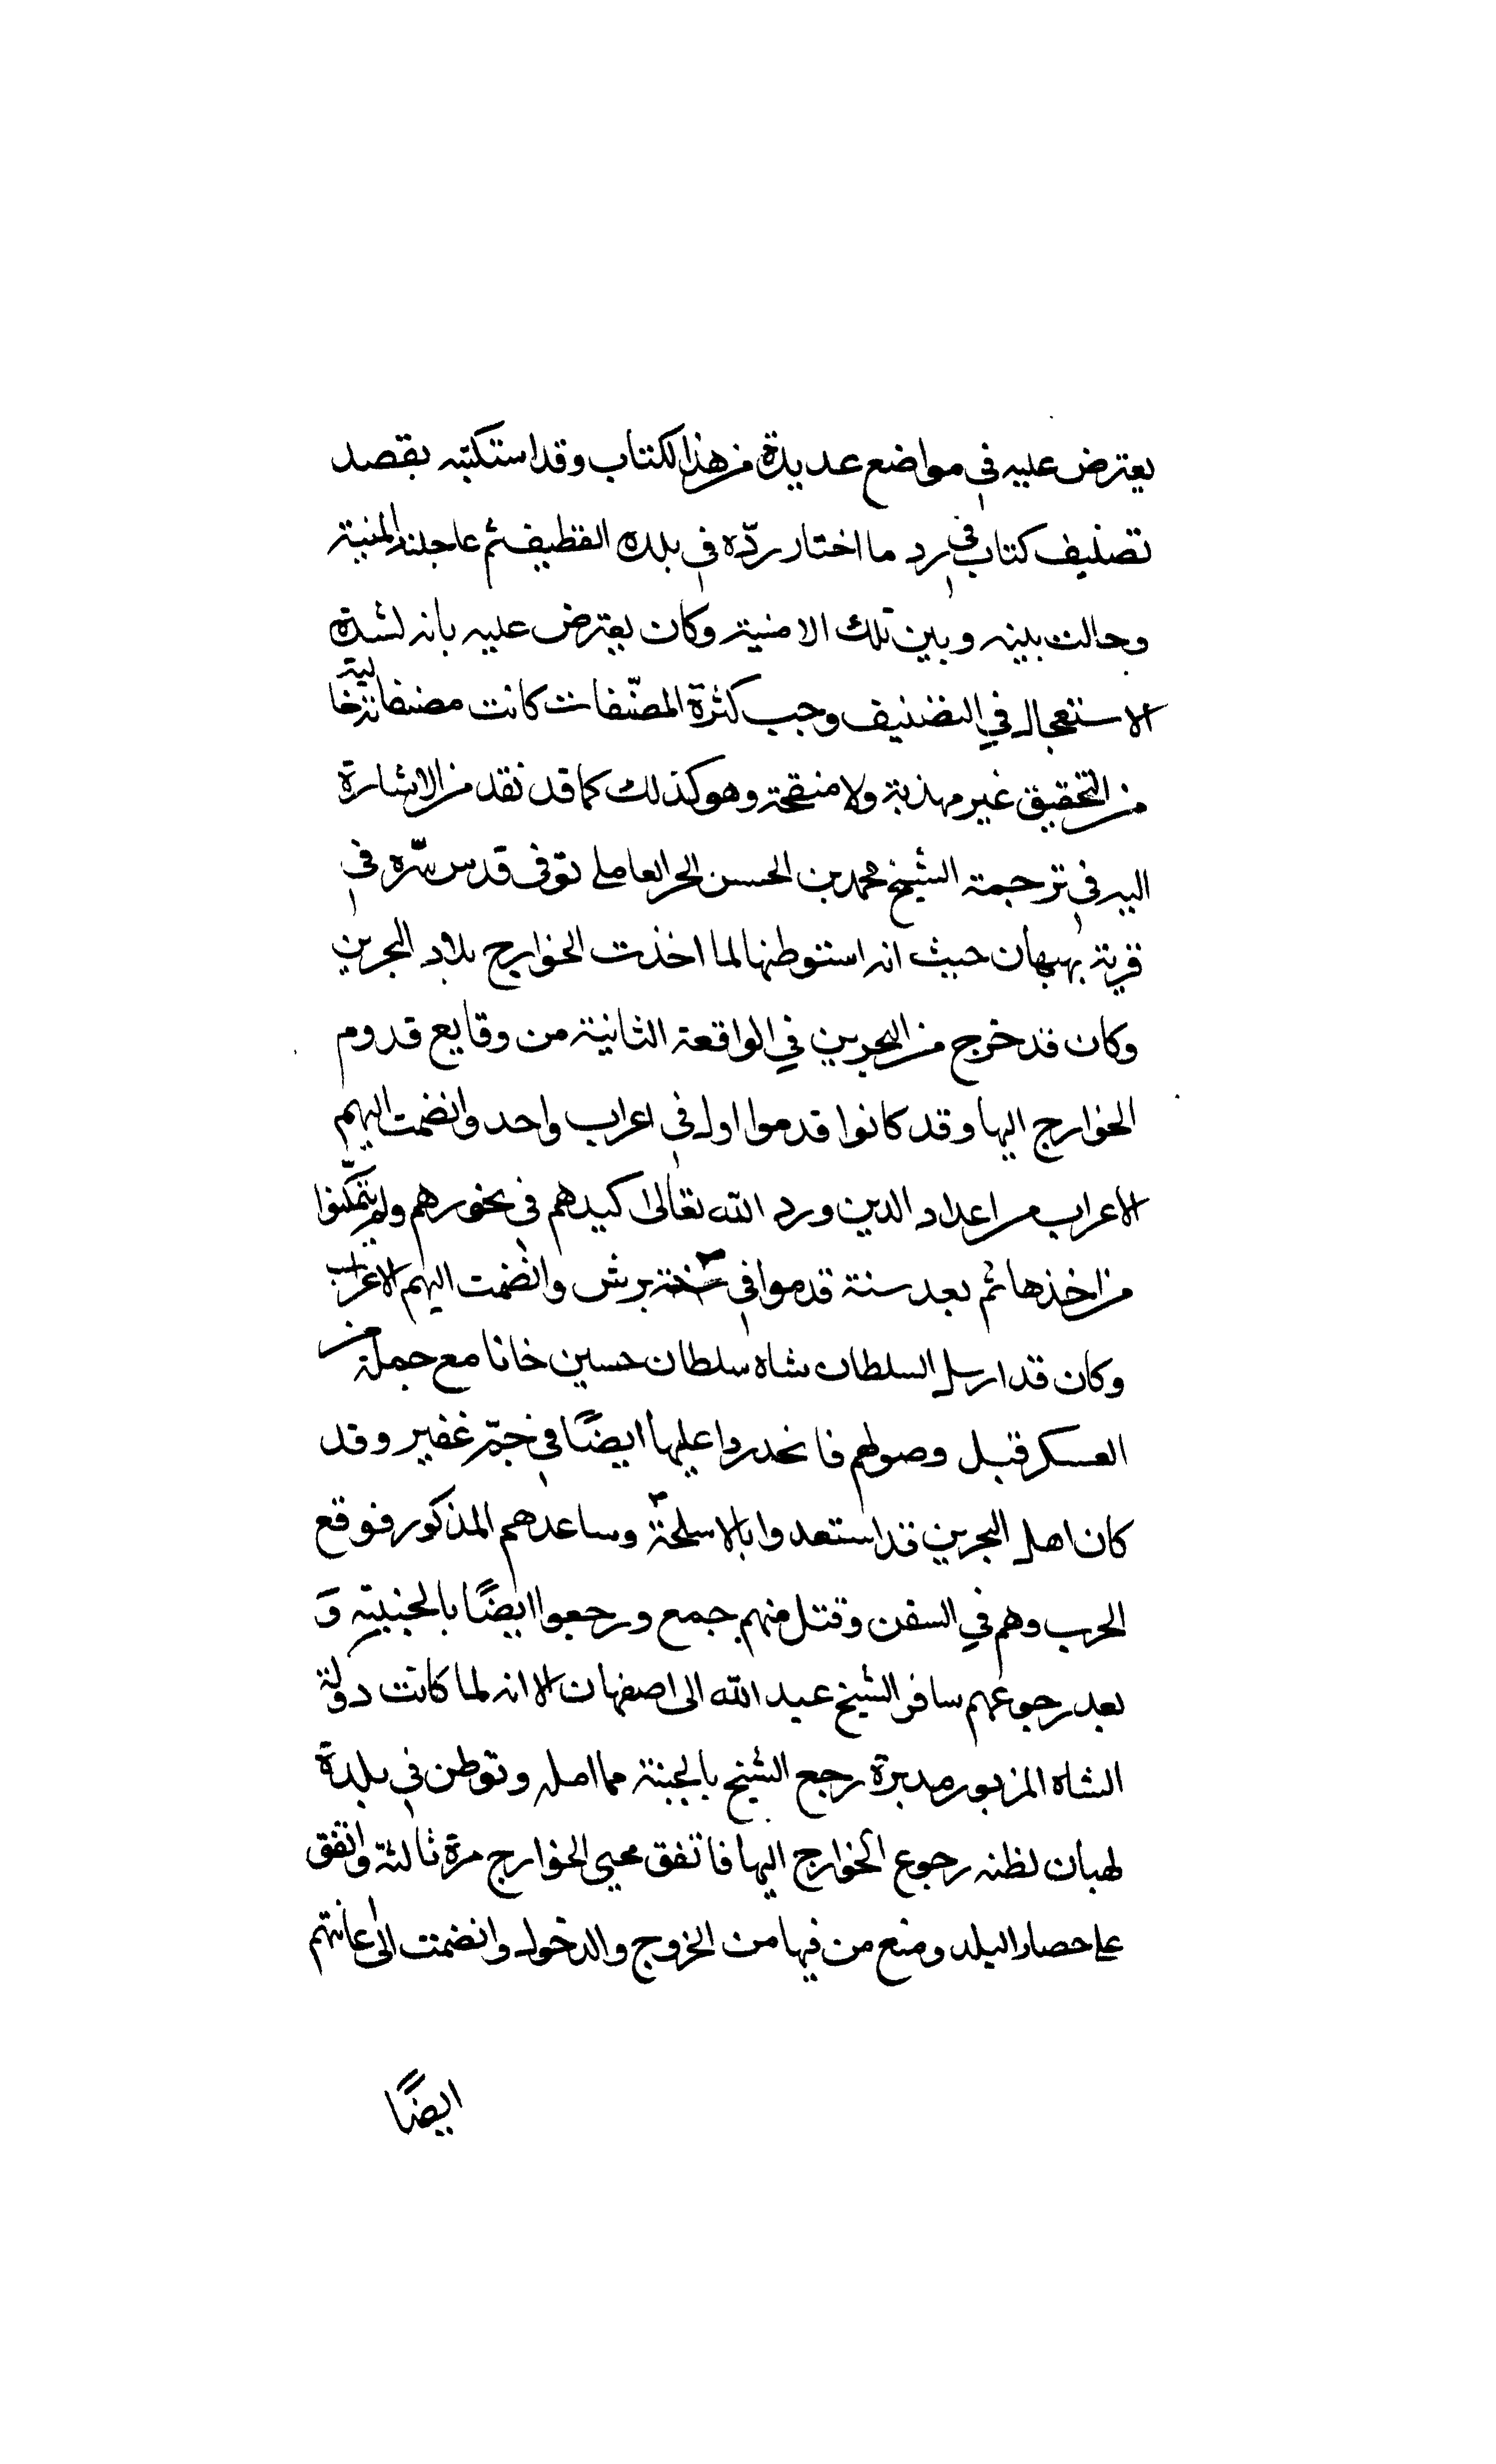 يعترض عليه في مواضع عديدة من هذا الكتاب وقد استكتبه بقصد
تصنيف كتاب في رد ما اختار ردّه في بلده القطيف ثم عاجلته المنية
وحالت بينه وبين تلك الامنية وكان يعترض عليه بانه لشدة
الاستعجال في التصنيف وحب كثرة المصنّفات كانت مصنفاته خالية
من التحقيق غير مهذبة ولا منقحة وهو كذلك كما قد تقدم الاشارة
اليه في ترجمة الشيخ محمد بن الحسن الحر العاملي توفى قدس سّره في
قرية بهبهان حيث انه استوطنها لما اخذت الخوارج بلاد البحرين
وكان قد خرج من البحرين في الواقعة الثانية من وقايع قدوم
الخوارج اليها وقد كانوا قدموا اول في اعراب واحد وانضمت اليهم
الاعراب من اعداد الدين ورد الله تعالى كيدهم في نحورهم ولم يتمكّنوا
من اخذها ثم بعد سنة قدموا في برش وانضمت اليهم الاعراب
وكان قد ارسل السلطان شاه سلطان حسين خانا مع جملة من
العسكر قبل وصولهم فانحدروا عليها ايضًا في جمّ غفير وقد
كان اهل البحرين قد استعدوا بالاسلحة وساعدهم المذكور فوقع
الحرب وهم في السفن وقتل منهم جمع ورجعوا ايضًا بالخيبة و
بعد رجوعهم سافر الشيخ عبد الله الى اصفهان الا انه لما كانت دولة
الشاه المزبور مدبرة رجع الشيخ بالخيبة مما امله وتوطن في بلدة
بهبان لظنه رجوع الخوارج اليها فاتفق مجيى الخوارج مرة ثالثة واتفق
على حصار البلد ومنع من فيها من الخروج والدخول وانضمت الى اعانتهم
ايضًا